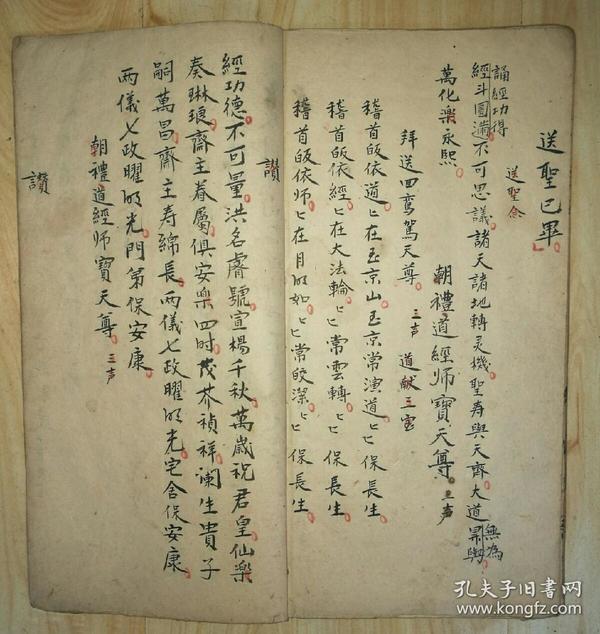 送聖已畢
送聖念
誦經功得
經斗圓滿不可思議諸天諸地轉灵機聖寿與天齊大道
無為
萬化樂永熙
朝禮道經师寶天尊 三声
拜送四鸾駕天尊 三声 道献三宝
稽首皈依道匕在玉京山玉京常演道匕匕保長生
稽首皈依經匕在大法輪匕匕常雲轉匕匕保長生
稽首皈依师匕在月明如匕匕常皎潔匕匕保長生
讚
經功德不可量洪名睿號宣楊千秋萬歲祝君皇仙樂
奏琳琅齋主眷屬俱安樂四时茂禎祥阑生贵子
嗣萬昌齋主寿綿長兩儀七政曜明光宅舍保安康
兩儀七政曜明光門第保安康
朝禮道經师寶天尊 三声
讚
孔夫子旧书网
www.kongfz.com